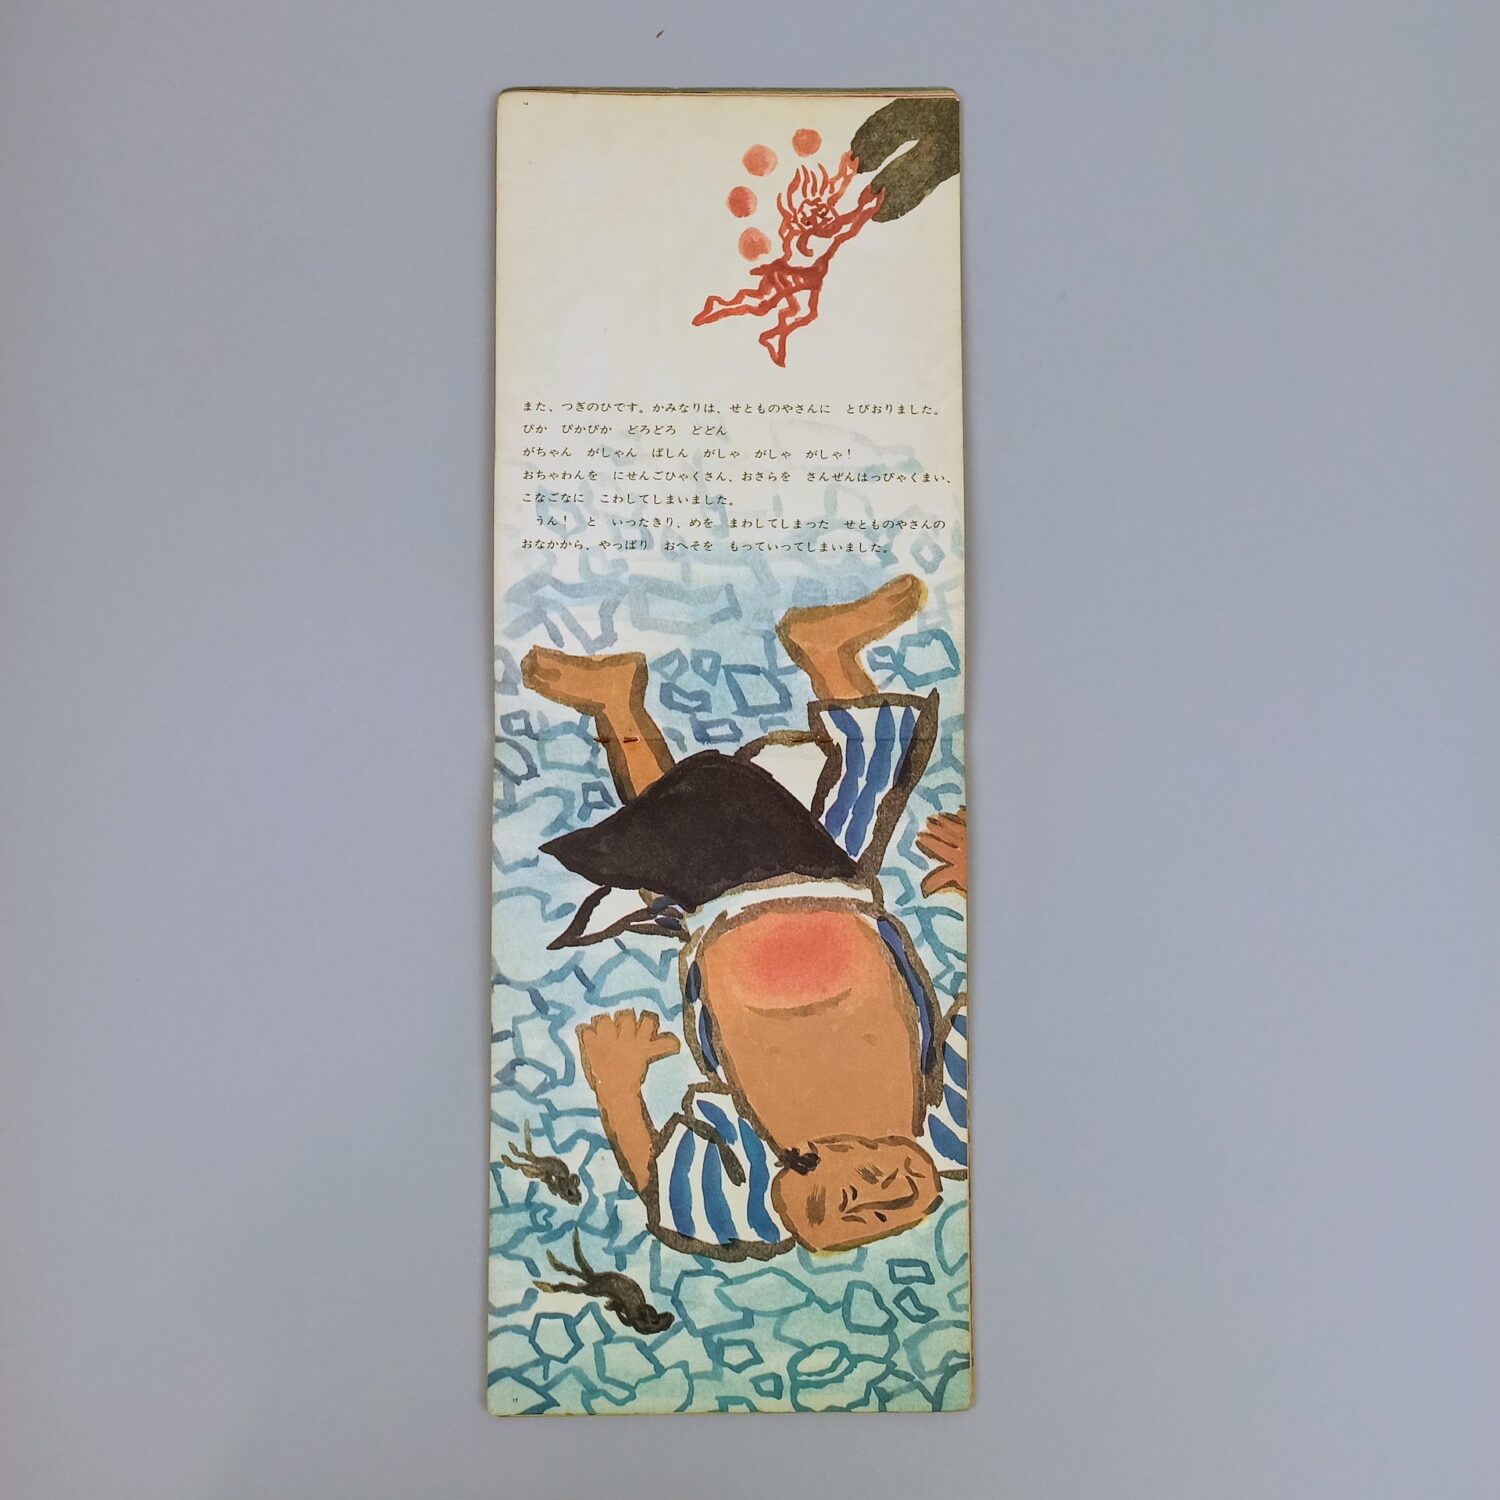 また、つぎのひです。かみなりは、せとものやさんに　とびおりました。
ぴか　ぴかぴか　どろどろ　どどん
がちゃん　がしゃん　ばしん　がしゃ　がしゃ　がしゃ！
おちゃわんを　にせんごひゃくさん、おさらを　さんぜんはっぴゃくまい、
こなごなに　こわしてしまいました。
　うん！　と　いったきり、めを　まわしてしまった　せとものやさんの
おなかから、やっぱり　おへそを　もっていってしまいました。